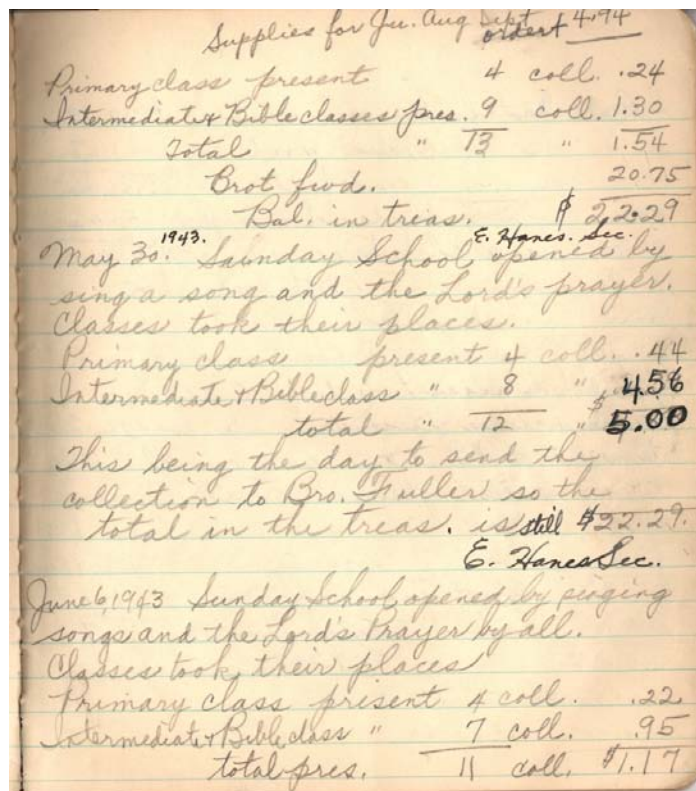 Supplies for Ju. Aug Sept ordert 4.94
Primary class present 4 coll. .24
Intermediate & Bible classes pres. 9 coll. 1.30
Total " 13 " 1.54
Brot fwd. 20.75
Bal. in treas. $ 22.29
E. Hanes. Sec.
May 30. 1943. Saunday School opened by
sing a song and the Lord's prayer.
Classes took their places.
Primary class present 4 coll. .44
Intermediate & Bible class " 8 " 4.56
total " 12 " $5.00
This being the day to send the
collection to Bro. Fuller so the
total in the treas. is still $22.29.
E. Hanes Sec.
June 6, 1943 Sunday School opened by singing
songs and the Lord's Prayer by all.
Classes took their places
Primary class present 4 coll. .22
Intermediate & Bible class " 7 coll. .95
total pres. 11 coll. $1.17